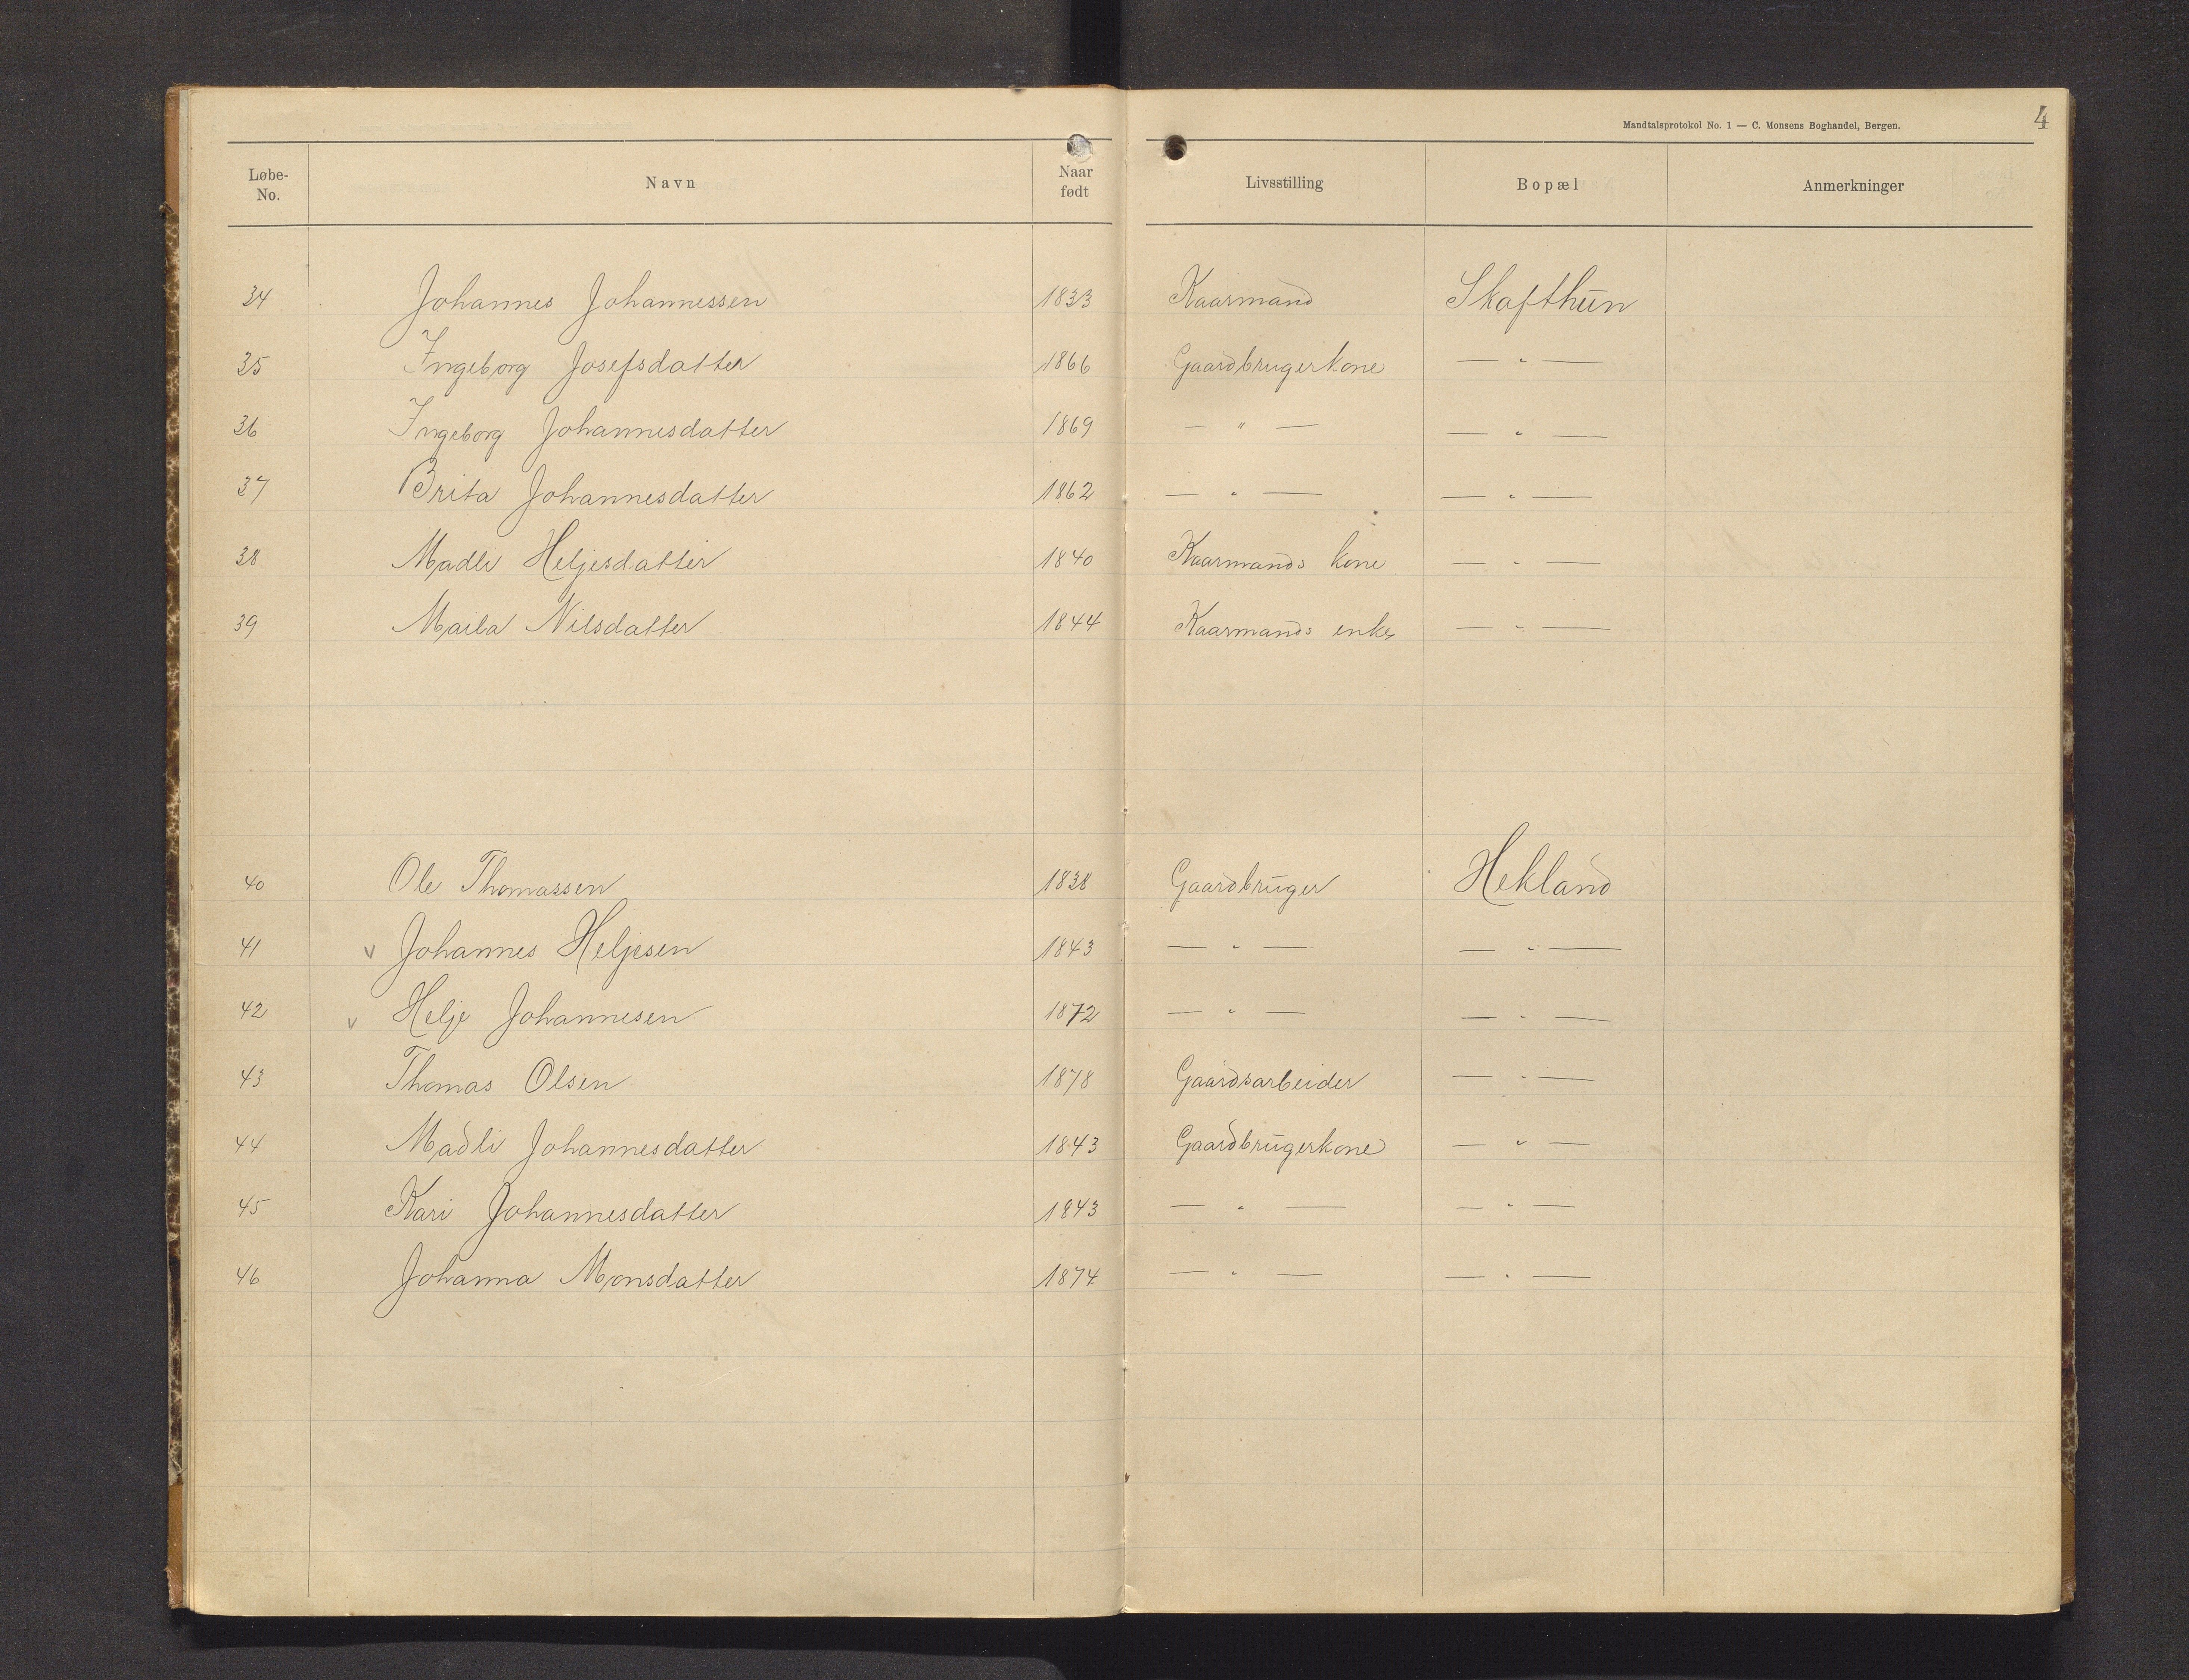 Mandtalsprotokol No. 1 — C. Monsens Boghandel, Bergen.
4
Løbe-No. Navn Naar født Livsstilling Bopæl Anmerkninger
34 Johannes Johannessen 1833 Kaarmand Skafthun
35 Ingeborg Josefsdatter 1866 Gaardbrugerkone — " —
36 Ingeborg Johannesdatter 1869 — " — — " —
37 Brita Johannesdatter 1862 — " — — " —
38 Madli Heljesdatter 1840 Kaarmands kone — " —
39 Maila Nilsdatter 1844 Kaarmands enke — " —
40 Ole Thomassen 1838 Gaardbruger Hekland
41 v Johannes Heljesen 1843 — " — — " —
42 v Helje Johannesen 1872 — " — — " —
43 Thomas Olsen 1878 Gaardsarbeider — " —
44 Madli Johannesdatter 1843 Gaardbrugerkone — " —
45 Kari Johannesdatter 1843 — " — — " —
46 Johanna Monsdatter 1874 — " — — " —